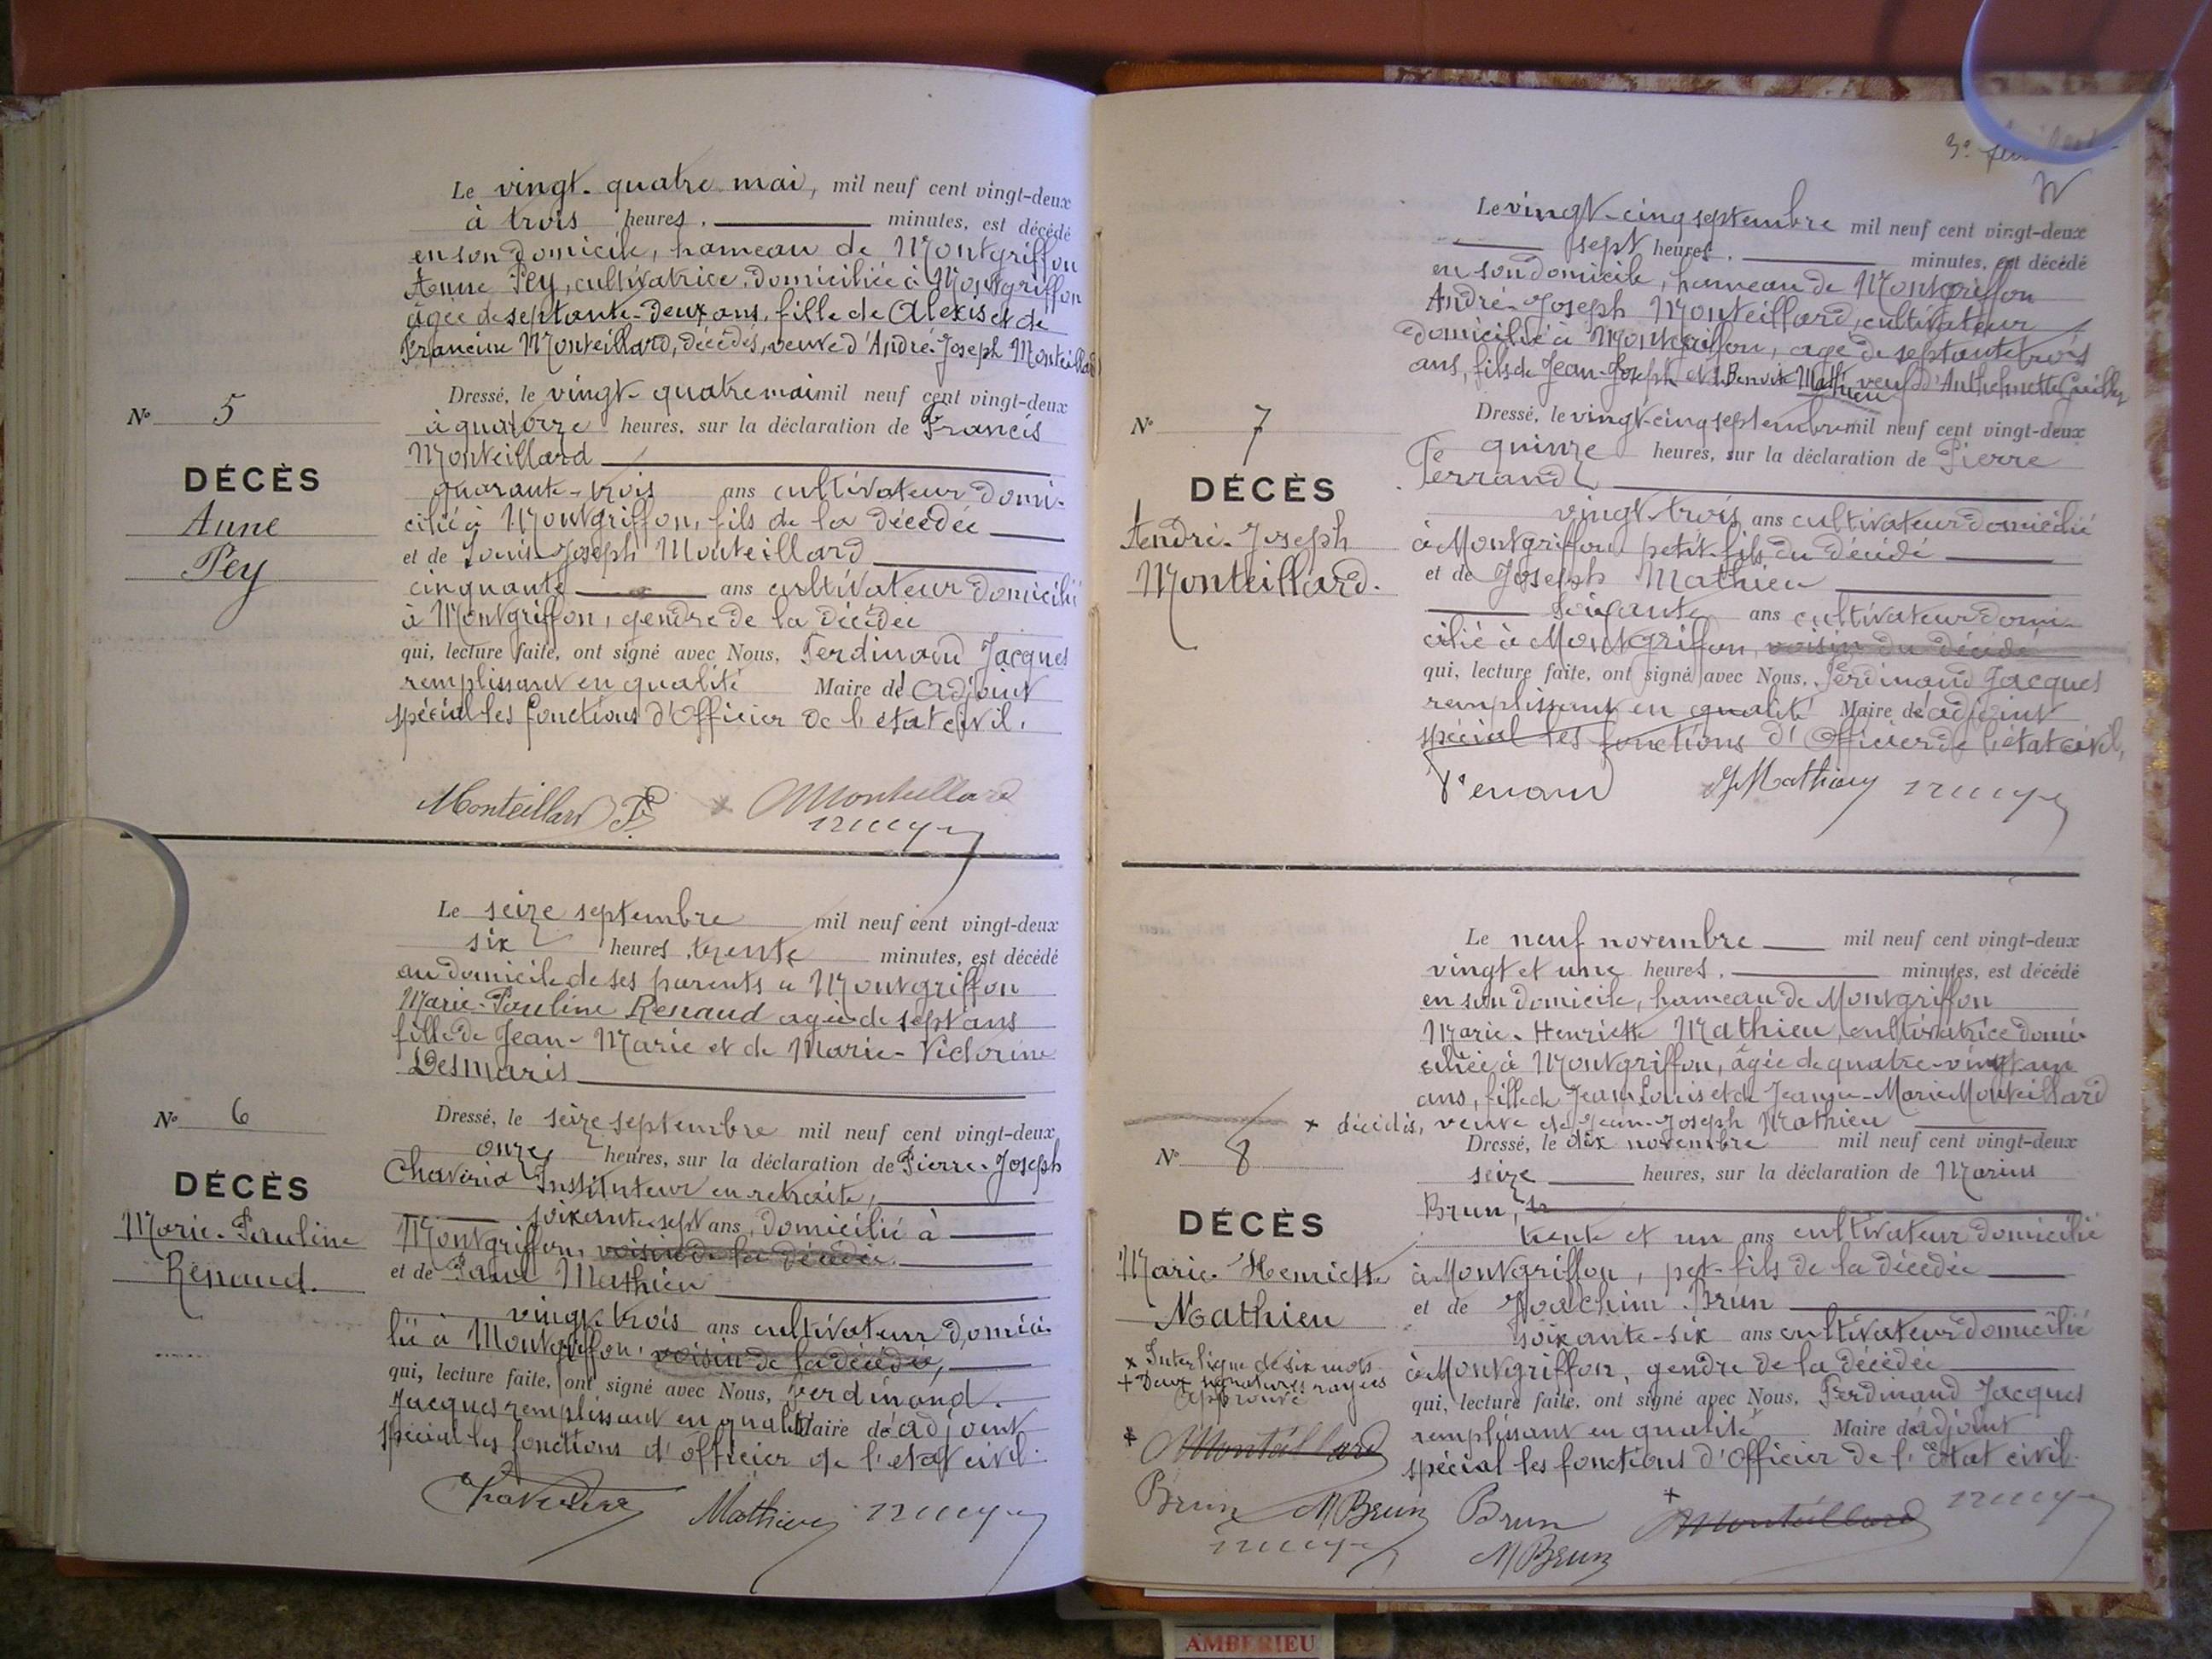 Le vingt-quatre mai, mil neuf cent vingt-deux
à trois heures, minutes, est décédé
en son domicile, hameau de Montgriffon
Anne Pey, cultivatrice, domiciliée à Montgriffon
âgée de septante-deux ans, fille de Alexis et de
Francine Monteillard, décédés, veuve d'André-Joseph Monteillard
Dressé, le vingt-quatre mai mil neuf cent vingt-deux
à quatorze heures, sur la déclaration de Francis
Monteillard
quarante-trois ans cultivateur domi-
cilié à Montgriffon, fils de la décédée
et de Louis-Joseph Monteillard
cinquante ans cultivateur domicilié
à Montgriffon, gendre de la décédée
qui, lecture faite, ont signé avec Nous, Ferdinand Jacques
remplissant en qualité Maire de d'adjoint
spécial les fonctions d'Officier de l'état civil.
N° 5
DÉCÈS
Anne
Pey
Monteillard F Monteillard
Le seize septembre mil neuf cent vingt-deux
six heures, trente minutes, est décédé
au domicile de ses parents a Montgriffon
Marie-Pauline Renaud agée de sept ans
fille de Jean-Marie et de Marie-Victorine
Desmaris
Dressé, le seize septembre mil neuf cent vingt-deux
onze heures, sur la déclaration de Pierre-Joseph
Instituteur en retraite,
soixante sept ans, domicilié à
Montgriffon, voisin de la décédée
et de Mathieu
vingt-trois ans cultivateur domici-
lié à Montgriffon, voisin de la décédée,
qui, lecture faite, ont signé avec Nous, Ferdinand
Jacques remplissant en qualité Maire de d'adjoint
spécial les fonctions d'officier de l'état civil.
N° 6
DÉCÈS
Marie-Pauline
Renaud.
Mathieu
3e
Le vingt-cinq septembre mil neuf cent vingt-deux
sept heures, minutes, est décédé
en son domicile, hameau de Montgriffon
André-Joseph Monteillard, cultivateur
domicilié à Montgriffon, agé de septante trois
ans, fils de Jean-Joseph et de Benoite Mathieu, veuf d'Anthelmette
Dressé, le vingt-cinq septembre mil neuf cent vingt-deux
quinze heures, sur la déclaration de Pierre
Ferrand
vingt-trois ans cultivateur domicilié
à Montgriffon petit-fils du décédé
et de Joseph Mathieu
soixante ans cultivateur domi-
cilié à Montgriffon, voisin du décédé
qui, lecture faite, ont signé avec Nous, Ferdinand Jacques
remplissant en qualité Maire de d'adjoint
spécial les fonctions d'Officier de l'état civil,
N° 7
DÉCÈS
André-Joseph
Monteillard.
J Mathieu
Le neuf novembre mil neuf cent vingt-deux
vingt et une heures, minutes, est décédé
en son domicile, hameau de Montgriffon
Marie-Henriette Mathieu, cultivatrice domi-
ciliée à Montgriffon, âgée de quatre-vingt un
ans, fille de Jean Louis et de Jeanne-Marie Monteillard
x décédés, veuve de Jean-Joseph Mathieu
Dressé, le dix novembre mil neuf cent vingt-deux
seize heures, sur la déclaration de Marius
Brun,
trente et un ans cultivateur domicilié
à Montgriffon, pet-fils de la décédée
et de Joachim Brun
soixante-six ans cultivateur domicilié
à Montgriffon, gendre de la décédée
qui, lecture faite, ont signé avec Nous, Ferdinand Jacques
remplissant en qualité Maire de d'adjoint
spécial les fonctions d'Officier de l'Etat civil.
N° 8
DÉCÈS
Marie-Henriette
Mathieu
x Interligne de six mots
+ Deux signatures rayées
approuvé
Monteillard
Brun M Brun
Brun Monteillard
M Brun
AMBERIEU